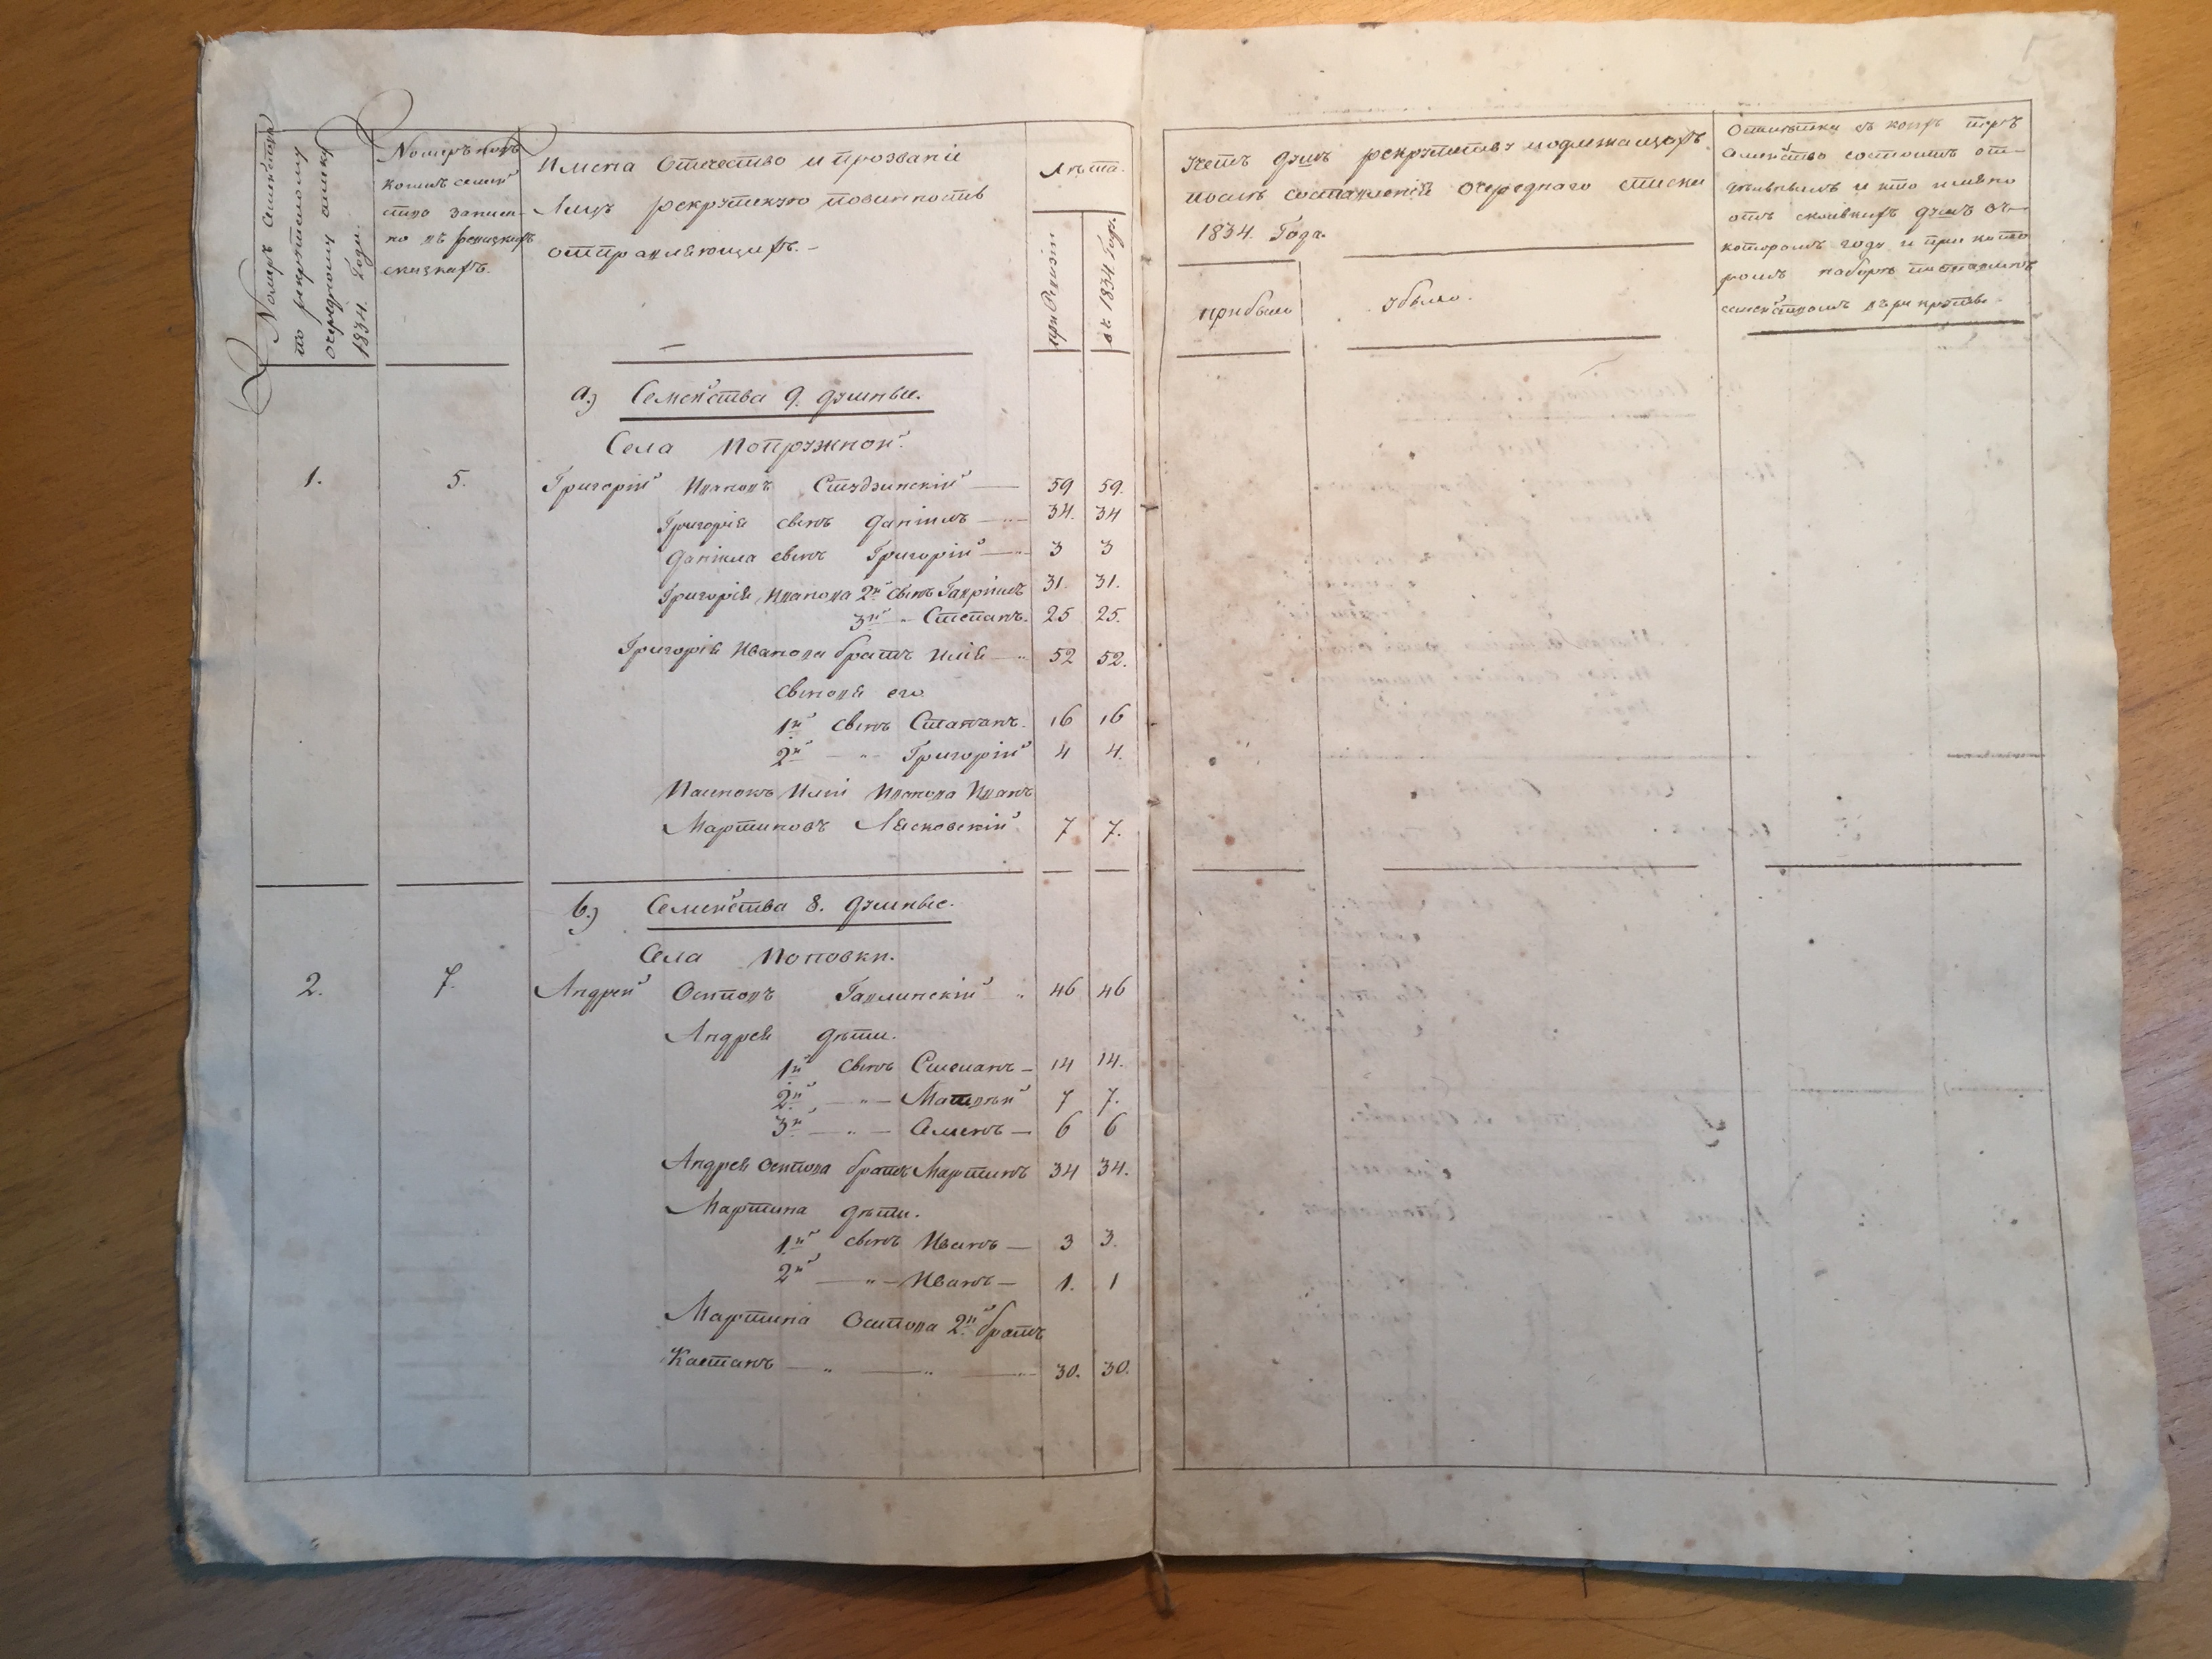 Номеръ Семейства
по рекрутскому
очередному списку
1834. Года.
Номеръ подъ
коимъ семей
ство записа-
но въ ревизкихъ
сказкахъ.
Имена Отчество и прозваніе
Лицъ рекрутскую повинность
отправляющихъ. -
Лѣта.
при Ревизіи
въ 1834 Году.
Счетъ душъ рекрутству подлежащихъ
послѣ составленія очереднаго списка
1834. Года.
прибыло
убыло.
Отмѣтки съ коихъ поръ
Семейство состоитъ от-
и кто имяно
отъ сколькихъ душъ въ
которомъ году и при кото
ромъ наборѣ поставленъ
семействомъ въ рекруты.
а.) Семейства 9. душные.
Села Попружной.
1. 5. Григорій Ивановъ Студзинскій — 59 59.
Григорія сынъ Даніилъ — 34. 34
Даніила сынъ Григорій — 3 3
Григорія Иванова 2й сынъ Гавріилъ 31. 31.
3й " Степанъ. 25 25.
Григорія Иванова братъ Илія — 52 52.
сыновя его
1й сынъ Степанъ. 16 16
2й — " Григорій 4 4.
Пасынокъ Иліи Иванова Иванъ
Мартиновъ Лясковскій 7 7.
b.) Семейства 8. душные.
Села Поповки.
2. 7. Андрей Осиповъ Гавлинскій " 46 46
Андрея дѣти.
1й сынъ Степанъ — 14 14.
2й — " — Матвѣй 7 7.
3й — " — Семенъ — 6 6
Андрея Осипова братъ Мартинъ 34 34.
Мартина дѣти.
1й сынъ Иванъ — 3 3.
2й — " — Иванъ — 1. 1
Мартина Осипова 2й братъ
Кастанъ — " — " — 30. 30.